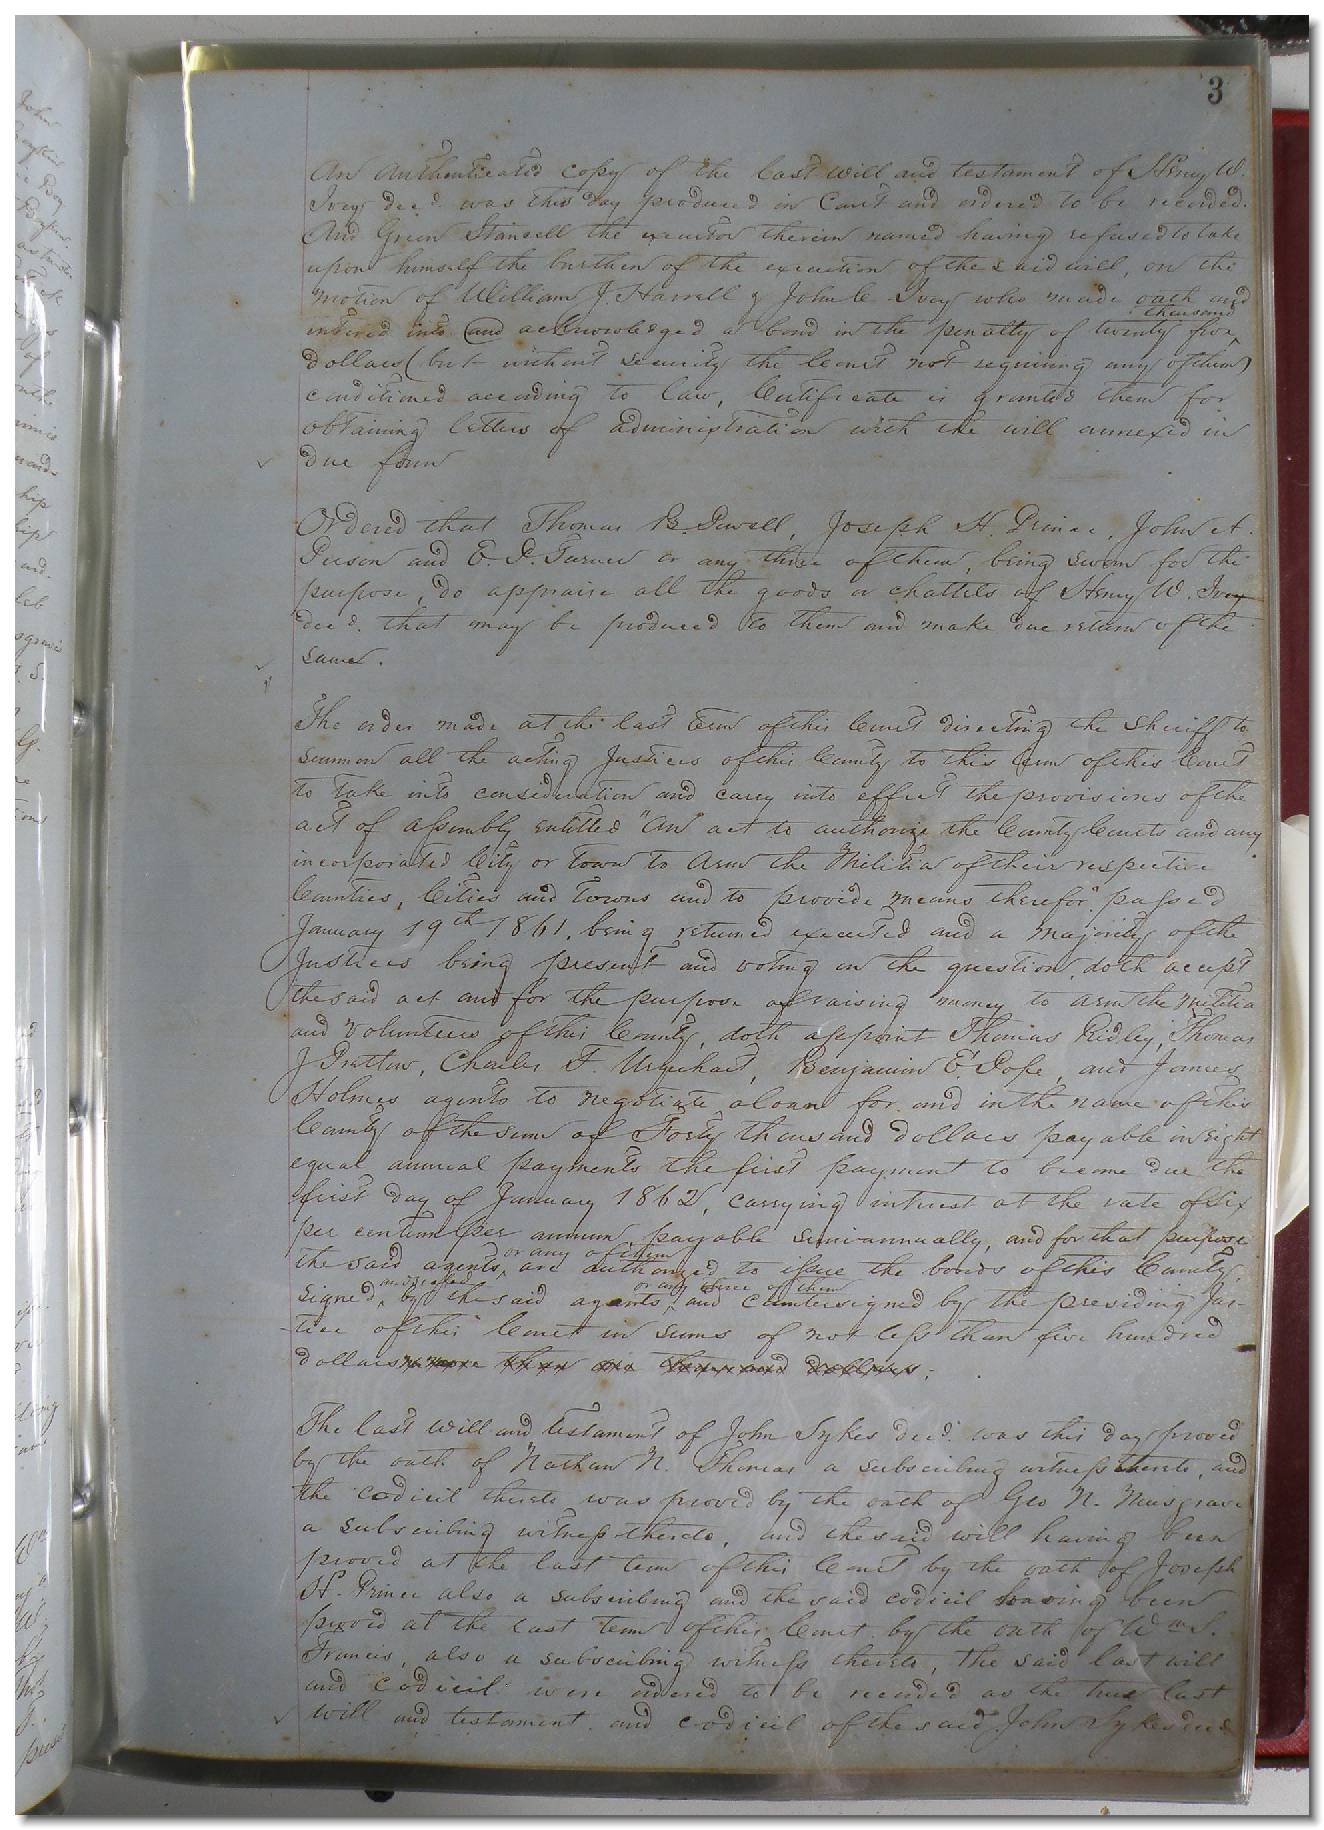 3
An Authenticated copy of the last will and testament of Henry W.
Ivey decd. was this day produced in Court and ordered to be recorded.
And Green Stansell the executor therein named having refused to take
upon himself the burthen of the execution of the said will, on the
motion of William J. Harrell & John C Ivey who made oath and
thousand
entered into and acknowledged a bond in the penalty of twenty five
dollars (but without security the Court not requiring any of them)
conditioned according to law, Certificate is granted them for
obtaining letters of administration with the will annexed in
due form
Ordered that Thomas B. Sewell, Joseph H. Prince, John A.
Person and E. P. Turner or any three of them, being sworn for the
purpose, do appraise all the goods or chattels of Henry W. Ivey
decd. that may be produced to them and make due return of the
same.
The order made at the last term of this Court directing the Sheriff to
summon all the acting Justices of this County to this term of this Court
to take into consideration and carry into effect the provisions of the
act of assembly entitled "An act to authorize the County Courts and any
incorporated City or Town to Arm the Militia of their respective
Counties, Cities and Towns and to provide means therefor" passed
January 19th 1861, being returned executed and a majority of the
Justices being present and voting on the question, doth accept
the said act and for the purpose of raising money to arm the Militia
and Volunteers of this County, doth appoint Thomas Ridley, Thomas
J Pretlow, Charles F. Urquhart, Benjamin E Pope, and James
Holmes agents to negotiate a loan for and in the name of this
County of the sum of Forty thousand dollars payable in eight
equal annual payments the first payment to become due the
first day of January 1862, carrying interest at the rate of six
per centum per annum, payable semi-annually, and for that purpose
or any of them
the said agents, are authorized to issue the bonds of this County,
and sealed or any three of them
signed, by the said agents, and countersigned by the presiding Jus-
tice of this Court in sums of not less than five hundred
dollars or more than one thousand dollars.
The last will and testament of John Sykes decd. was this day proved
by the oath of Nathan N. Thomas a subscribing witness thereto, and
the codicil thereto was proved by the oath of Geo N. Musgrave
a subscribing witness thereto, and the said will having been
proved at the last term of this Court by the oath of Joseph
H. Prince also a subscribing and the said codicil having been
proved at the last term of this Court by the oath of Wm S.
Francis, also a subscribing witness thereto, the said last will
and codicil were ordered to be recorded as the true last
will and testament and codicil of the said John Sykes decd